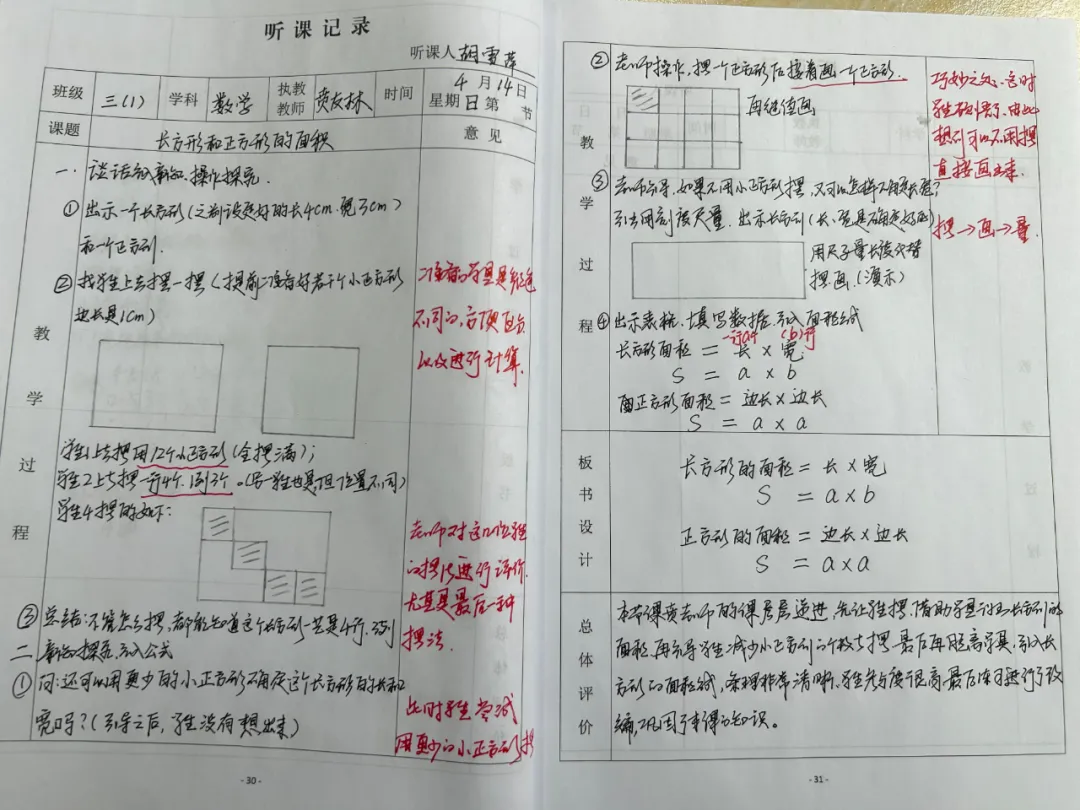 听课记录
听课人 胡雪萍
班级 三(1) 学科 数学 执教教师 贲友林 时间 4月14日 星期日第 节
课题 长方形和正方形的面积 意见
教学过程
一、谈话引入新知,操作探究.
①出示一个长方形(之前设更好的长4cm.宽3cm)
和一个正方形.
②找学生上去摆一摆(提前准备好若干个小正方形
边长是1cm)
准备的学具是颜色
不同的,方便
进行计算.
学生1上去摆用12个小正方形(全摆满);
学生2上去摆一行4个.1列3个。(另一学生也是但位置不同)
学生4摆的如下:
老师对这几位学生
的摆法进行评价.
尤其是最后一种
摆法.
③总结:不管怎么摆,都能知道这个长方形一共是4行,3列
二、新知探究,引入公式
①问:还可以用更少的小正方形确定这个长方形的长和
宽吗?(引导之后,学生没有想出来)
此时学生尝试
用更少的小正方形摆
- 30 -
教学过程
②老师操作,摆一个正方形后接着画一个正方形.
再继续画
巧妙之处.这时
学生
想到可以不用摆
直接画出来.
③老师引导,如果不用小正方形摆,又可以怎样才确定长度?
引出用刻度尺量.出示长方形(长、宽是不确定好的)
用尺子量长度代替
摆画.(演示)
摆→画→量.
④出示表格.填写数据.引入面积公式
一行a个 (b)行
长方形面积 = 长 × 宽
S = a × b
正方形面积 = 边长 × 边长
S = a × a
板书设计
长方形的面积 = 长 × 宽
S = a × b
正方形的面积 = 边长 × 边长
S = a × a
总体评价
本节课贲老师的课层层递进,先让学生摆.借助学具得出长方形的
面积,再引导学生减少小正方形的个数去摆.最后再脱离学具,引入长
方形的面积公式,条理非常清晰.学生参与度很高.最后练习进行了改
编,巩固了本课的知识。
- 31 -